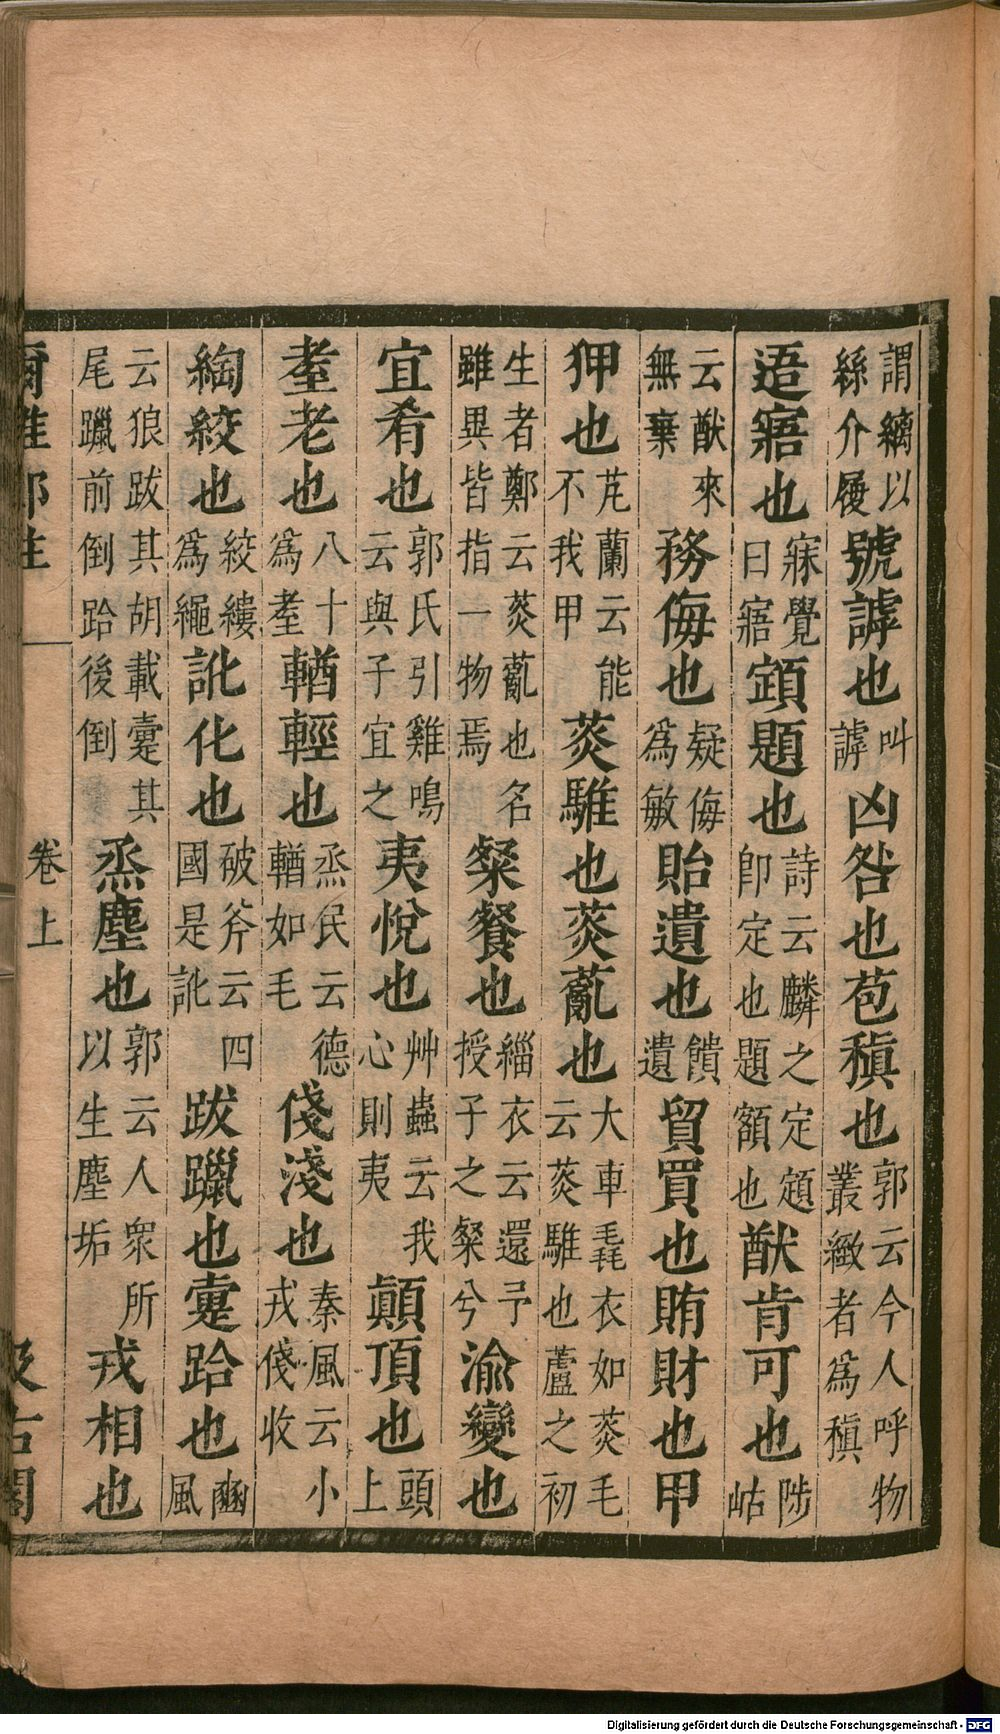 謂縭以絲介履號謼也叫謼凶咎也苞稹也郭云今人呼物叢緻者為稹
逜寤也寐覺曰寤顁題也詩云麟之定顁卽定也題額也猷肯可也陟岵
云猷來無棄務侮也疑侮為敏貽遺也饋遺貿買也賄財也甲
狎也芄蘭云能不我甲菼騅也菼薍也大車毳衣如菼毛云菼騅也蘆之初
生者鄭云菼薍也名雖異皆指一物焉粲餐也緇衣云還予授子之粲兮渝變也
宜肴也郭氏引雞鳴云與子宜之夷悅也艸蟲云我心則夷顛頂也頭上
耋老也八十為耋輶輕也烝民云德輶如毛俴淺也秦風云小戎俴收
綯絞也絞縷為繩訛化也破斧云四國是訛跋躐也疐跲也豳風
云狼跋其胡載疐其尾躐前倒跲後倒烝塵也郭云人眾所以生塵垢戎相也
爾雅鄭注 卷上 汲古閣
Digitalisierung gefördert durch die Deutsche Forschungsgemeinschaft - DFG